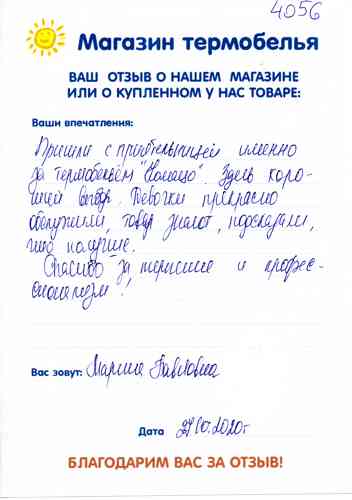 4056
Магазин термобелья
ВАШ ОТЗЫВ О НАШЕМ МАГАЗИНЕ
ИЛИ О КУПЛЕННОМ У НАС ТОВАРЕ:
Ваши впечатления:
Пришли с приятельницей именно
за термобельём "Номецо". Здесь хоро-
ший выбор. Девочки прекрасно
обслужили, товар знают, подсказали,
что получше.
Спасибо за терпение и профес-
сионализм!
Вас зовут: Марина Павловна
Дата 27.10.2020г
БЛАГОДАРИМ ВАС ЗА ОТЗЫВ!